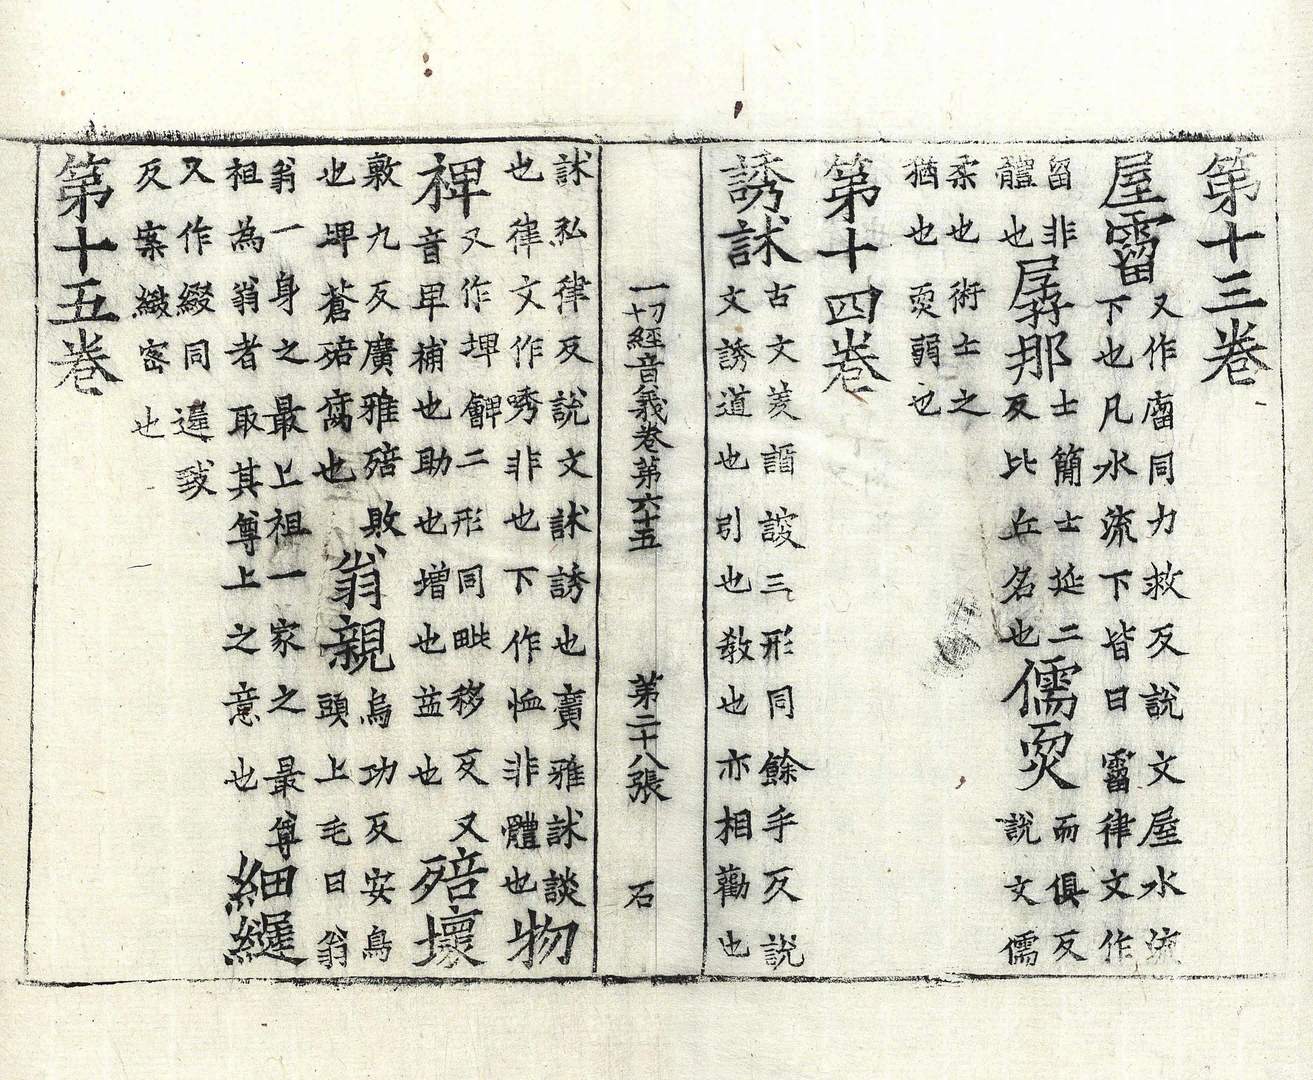 第十三卷
屋霤又作廇同力救反說文屋水流
下也凡水流下皆曰霤律文作
留非
體也孱那士簡士延二
反比丘名也儒耎而俱反
說文儒
柔也術士之
猶也耎弱也
第十四卷
誘訹古文羑三形同餘手反說
文誘道也引也敎也亦相勸也
一切經音義卷第六十五 第二十八張 石
訹私律反說文訹誘也廣雅訹談
也律文作㖢非也下作恤非體也物
裨又作埤二形同毗移反又
音卑補也助也增也益也殕壞
敷九反廣雅殕敗
也埤蒼殕腐也翁親烏功反安鳥
頭上毛曰翁
翁一身之最上祖一家之最尊
祖為翁者取其尊上之意也細
又作綴同
反案緻密也
第十五卷